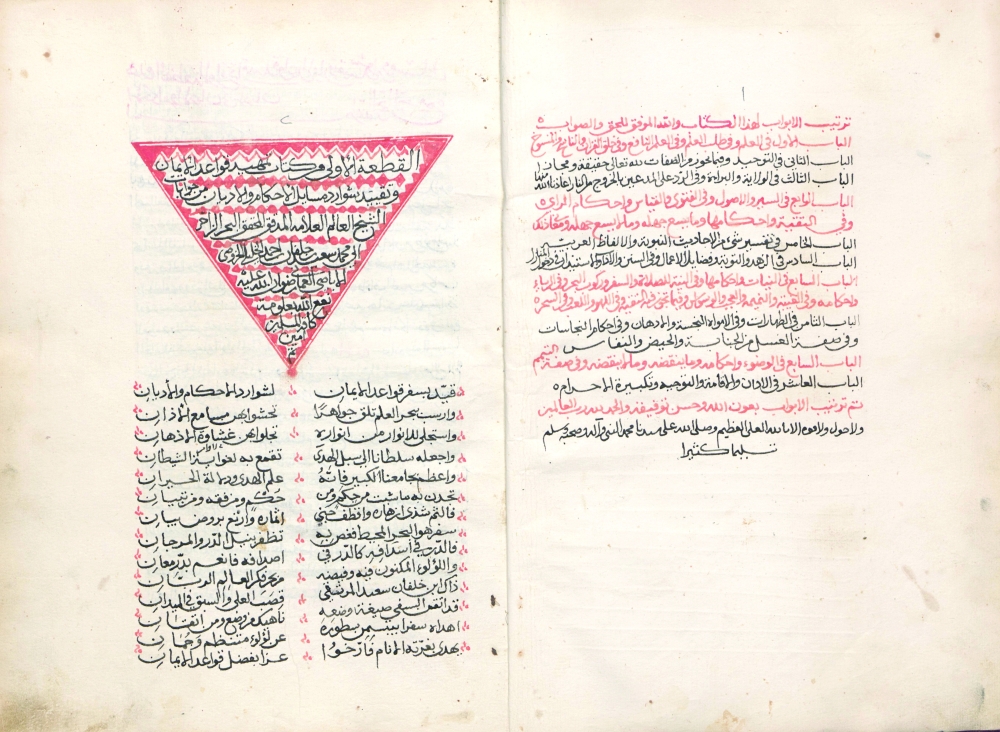 ترتيب الابواب لهذا الكتاب والله الموفق للحق والصواب
الباب الاول في العلم وفي طلب العلم وفي العلم النافع وفي خلق القران
الباب الثاني في التوحيد وفيما يجوز من الصفات لله تعالى حقيقة ومجازا
الباب الثالث في الولاية والبراءة وفي الرد على المدعين بالخروج من النار اعاذنا الله منها
الباب الرابع في السير والاصول وفي الفتوى والقياس واحكام القراءة
وفي التقية واحكامها وما يسع جهله وما لا يسع جهله
الباب الخامس في تفسير شيء من الاحاديث النبوية والالفاظ العربية
الباب السادس في الزهد والتوبة وفضايل الاعمال وفي السنن
الباب السابع في النيات واحكامها وفي النية للصلاة والسفر
واحكامه وفي الغيبة والنميمة
الباب الثامن في الطهارات وفي الامواه النجسة والادهان وفي احكام النجاسات
وفي صفة الغسل من الجنابة والحيض والنفاس
الباب السابع في الوضوء واحكامه وما ينقضه وما لا ينقضه وفي صفة التيمم
الباب العاشر في الاذان والاقامة والتوجيه وتكبيرة الاحرام
تم ترتيب الابواب بعون الله وحسن توفيقه والحمد لله رب العالمين
ولا حول ولا قوة الا بالله العلي العظيم وصلى الله على سيدنا محمد النبي واله وصحبه وسلم
تسليما كثيرا
القطعة الاولى من كتاب تمهيد قواعد الايمان
وتقييد شوارد مسايل الاحكام والاديان من جوابات
الشيخ العالم العلامة المدقق المحقق البحر الزاخر
ابي محمد سعيد بن خلفان بن احمد الخليلي الخروصي
الاباضي العماني رضوان الله عليه
نفع الله بعلومه
كافة المسلمين
امين
قيد بسفر قواعد الايمان لشوارد الاحكام والاديان
وارسب ببحر العلم تلق جواهرا تحشو بهن مسامع الاذان
واستجلى للانوار من انواره تجلو بهن غشاوة الاذهان
واجعله سلطانا الى سبل الهدى تقمع به لغواية الشيطان
واعظم بجامعنا الكبير فانه علم الهدى ودلالة الحيران
تحدن به ما شئت من حكم ومن حكم ومن فقه ومن تبيان
فالثم شذى ازهاره واقطف جنى اثماره وارتع بروض بيان
سفر هو البحر المحيط فغص به تظفر بنيل الدر والمرجان
فالدر في اسدافه كالدر في اصدافه فانعم بدر معان
واللؤلؤ المكنون فيه وفيضه من بحر فكر العالم الرباني
ذاك ابن خلفان سعيد المرتقي قصب العلى والسبق في الميدان
قد اتقن السيفي صيغة وضعه ناهيك من وضع ومن اتقان
اهداه سفرا يبتسمن سطوره عن لؤلؤ متنظم وجمان
يهدى بغرته الانام فارخوا عزا بفضل قواعد الايمان